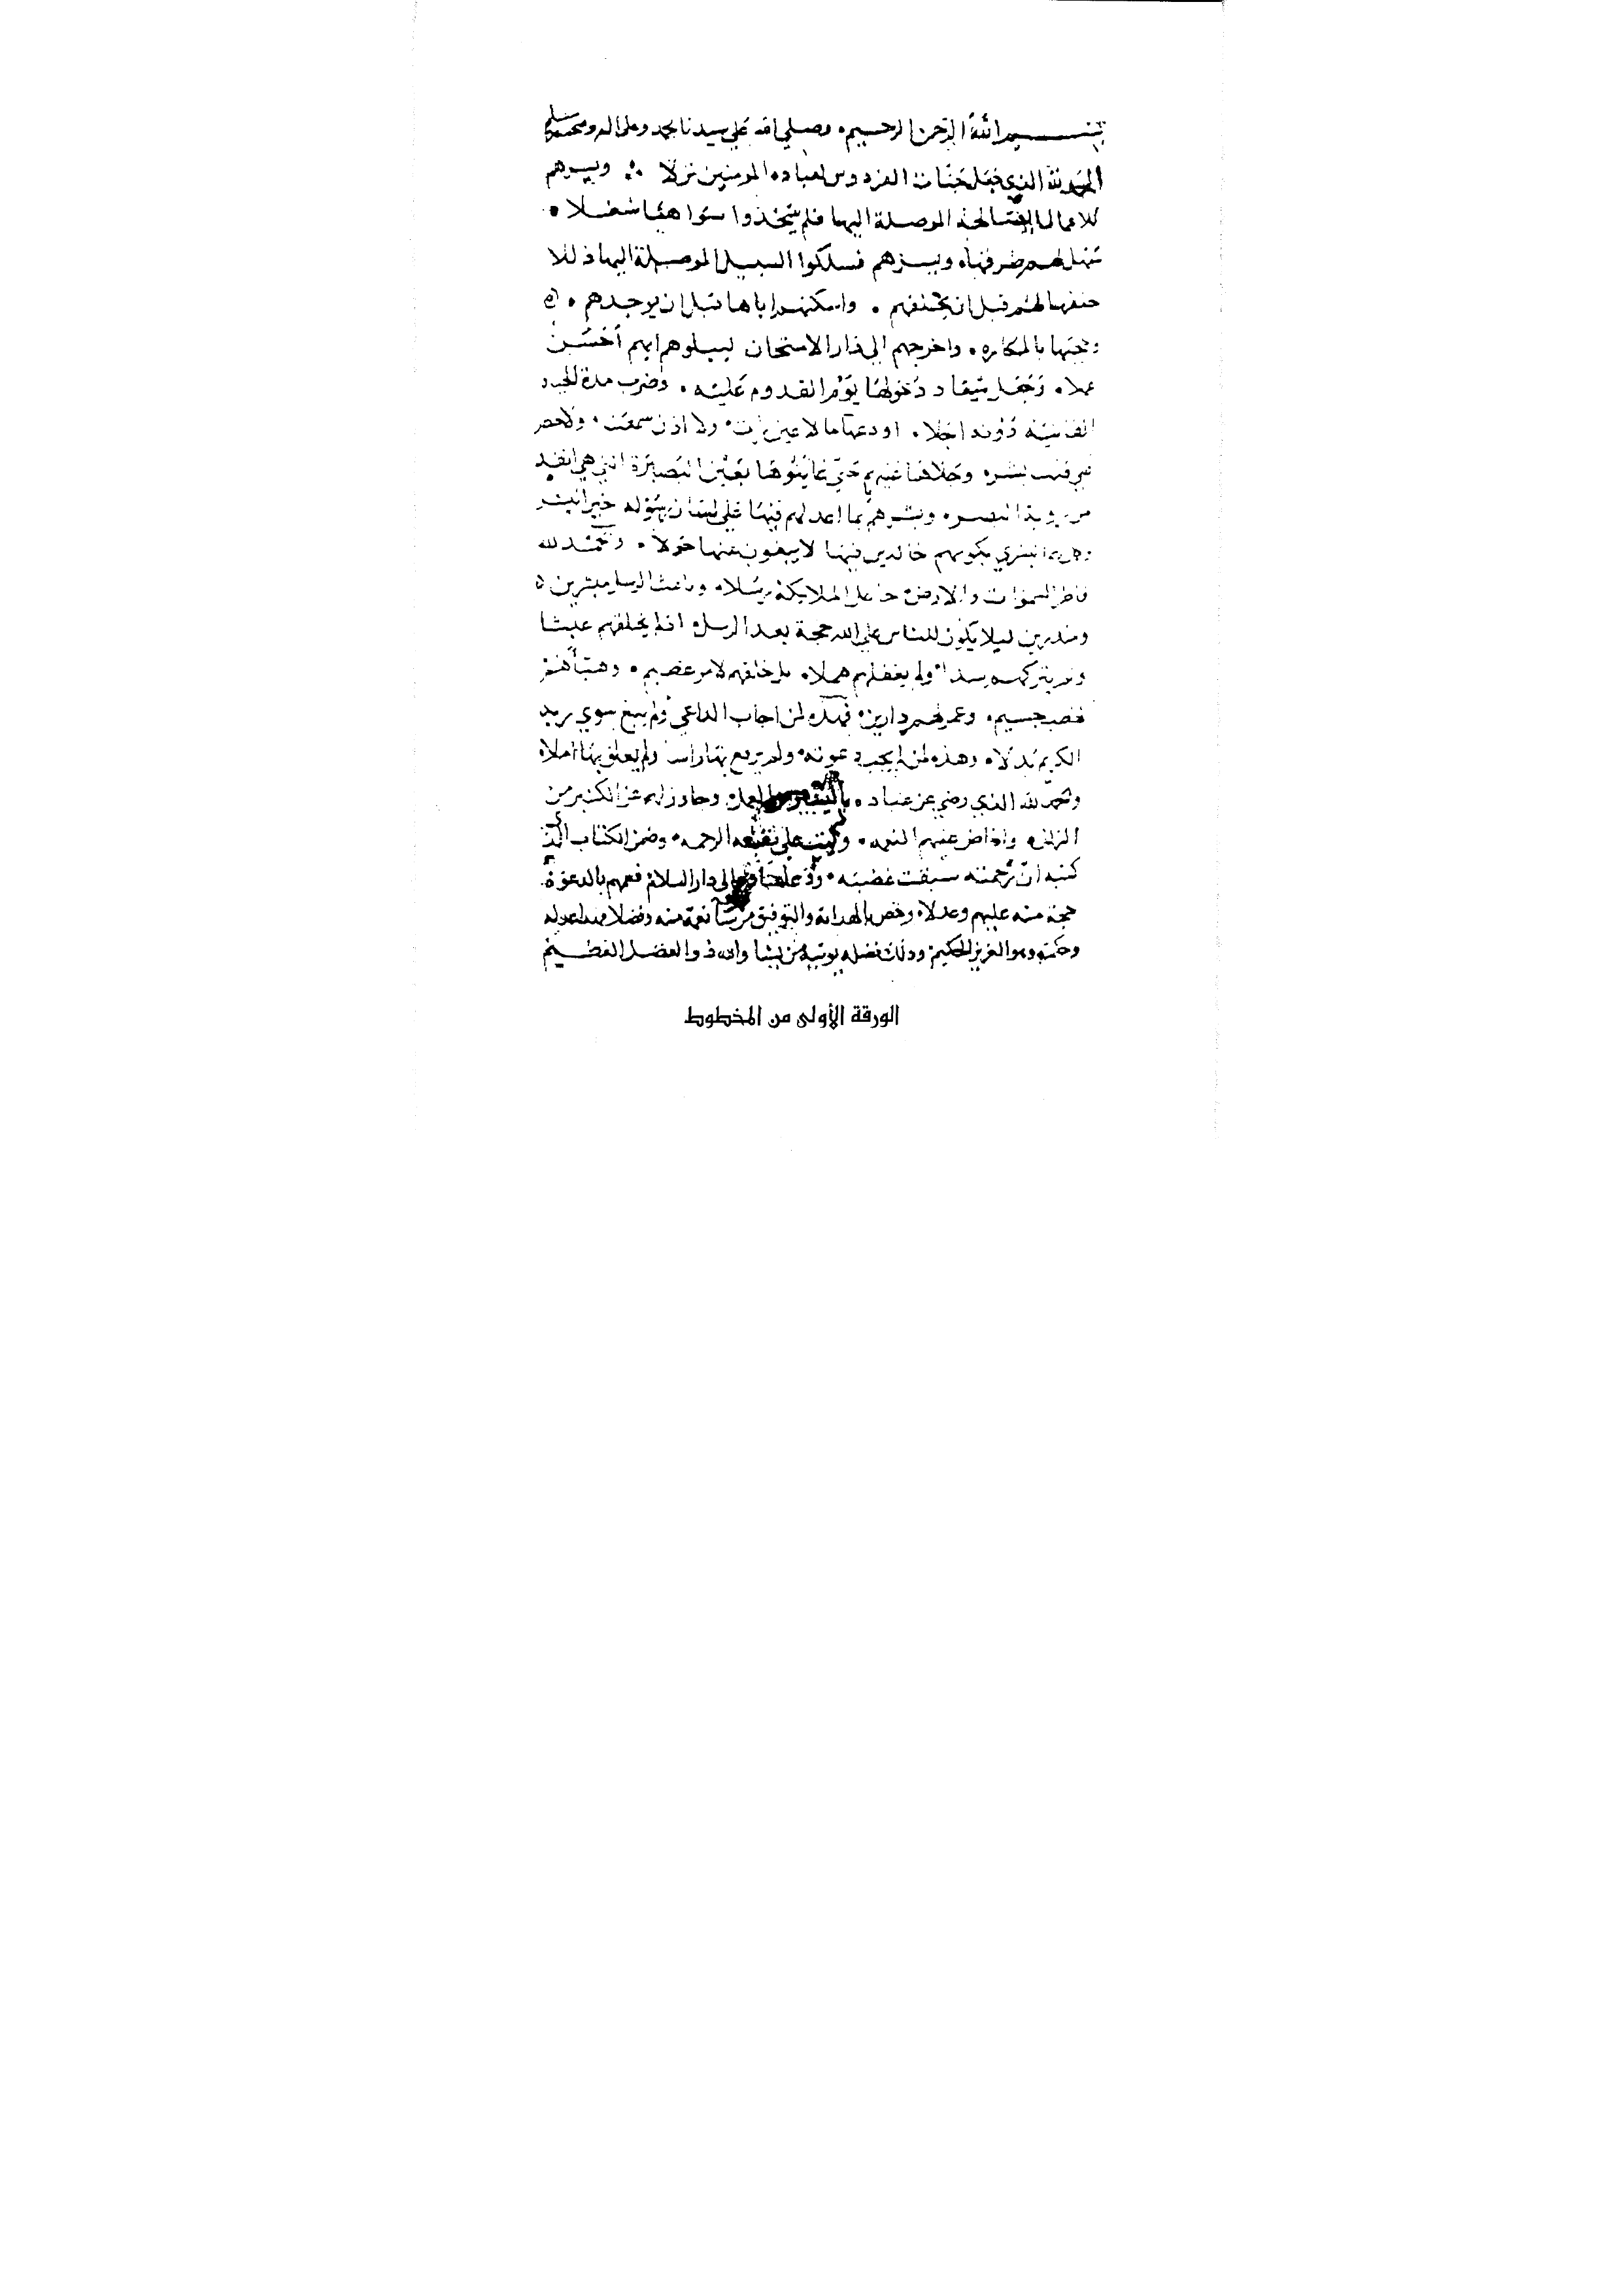 بسم الله الرحمن الرحيم وصلى الله على سيدنا محمد وعلى اله وصحبه وسلم
الحمد لله الذي جعل جنات الفردوس لعباده المومنين نزلا ويسرهم
للاعمال الصالحة الموصلة اليها فلم يتخذوا سواها شغلا
سهل لهم طرقها ويسرهم فسلكوا السبيل الموصلة اليها ذللا
خلقها لهم قبل ان يخلقهم واسكنهم اياها قبل ان يوجدهم
وحجبها بالمكاره واخرجهم الى دار الامتحان ليبلوهم ايهم احسن
عملا وجعل ميقاد دخولها يوم القدوم عليه وضرب مدة الحياة
الفانية دونه اجلا اودعها ما لا عين رات ولا اذن سمعت ولا خطر
على قلب بشر وجلاها عليهم حتى عاينوها بعين البصيرة التي هي انفد
من روية البصر وبشرهم بما اعد لهم فيها على لسان رسوله خير البشر
البشري بكونهم خالدين فيها لا يبغون عنها حولا والحمد لله
فاطر السموات والارض جاعل الملايكة رسلا وباعث الرسل مبشرين
ومنذرين ليلا يكون للناس على الله حجة بعد الرسل اذ لم يخلقهم عبثا
ولم يتركهم سدا ولم يغفلهم هملا بل خلقهم لامر عضيم وهيأهم
لخصب جسيم وعمر لهم دارين فهذه لمن اجاب الداعي ولم يبغ سوي ربه
الكريم بدلا وهذه لمن لم يجب دعوته ولم يرفع بها راسا ولم يعلق بها املا
والحمد لله الذي رضي من عباده باليسير من العمل وتجاوز لهم عن الكثير من
الزلل وافاض عليهم النعمه وكتب على نفسه الرحمه وضمن الكتاب الذي
كتبه ان رحمته سبقت غضبه دعا عباده الى دار السلام فعمهم بالدعوة
حجة منه عليهم وعدلا وخص بالهداية والتوفيق من شا نعمة منه وفضلا فهذا عدله
وحكمته وهو العزيز الحكيم وذلك فضله يوتيه من يشا والله ذو الفضل العظيم
الورقة الأولى من المخطوط